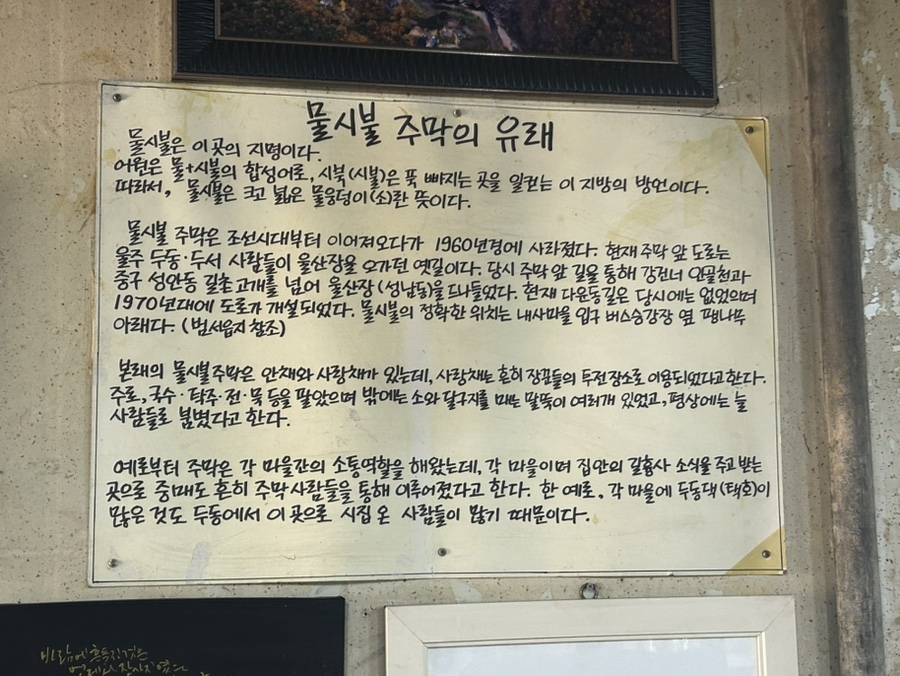 물시불 주막의 유래
물시불은 이 곳의 지명이다.
어원은 물+시불의 합성어로, 시북(시불)은 푹 빠지는 곳을 일컫는 이 지방의 방언이다.
따라서, 물시불은 크고 넓은 물웅덩이(소)란 뜻이다.
물시불 주막은 조선시대부터 이어져오다가 1960년경에 사라졌다. 현재 주막 앞 도로는
울주 두동·두서 사람들이 울산장을 오가던 옛길이다. 당시 주막 앞 길을 통해 강건너 안골천과
중구 성안동 길촌고개를 넘어 울산장(성남동)을 드나들었다. 현재 다운동길은 당시에는 없었으며
1970년대에 도로가 개설되었다. 물시불의 정확한 위치는 내사마을 입구 버스승강장 옆 팽나무
아래다. (범서읍지 참조)
본래의 물시불주막은 안채와 사랑채가 있는데, 사랑채는 흔히 장꾼들의 투전장소로 이용되었다고 한다.
주로, 국수·탁주·전·묵 등을 팔았으며 밖에는 소와 달구지를 매는 말뚝이 여러개 있었고, 평상에는 늘
사람들로 붐볐다고 한다.
예로부터 주막은 각 마을간의 소통역할을 해왔는데, 각 마을이며 집안의 길흉사 소식을 주고 받는
곳으로 중매도 흔히 주막사람들을 통해 이루어졌다고 한다. 한 예로, 각 마을에 두동댁(택호)이
많은 것도 두동에서 이 곳으로 시집 온 사람들이 많기 때문이다.